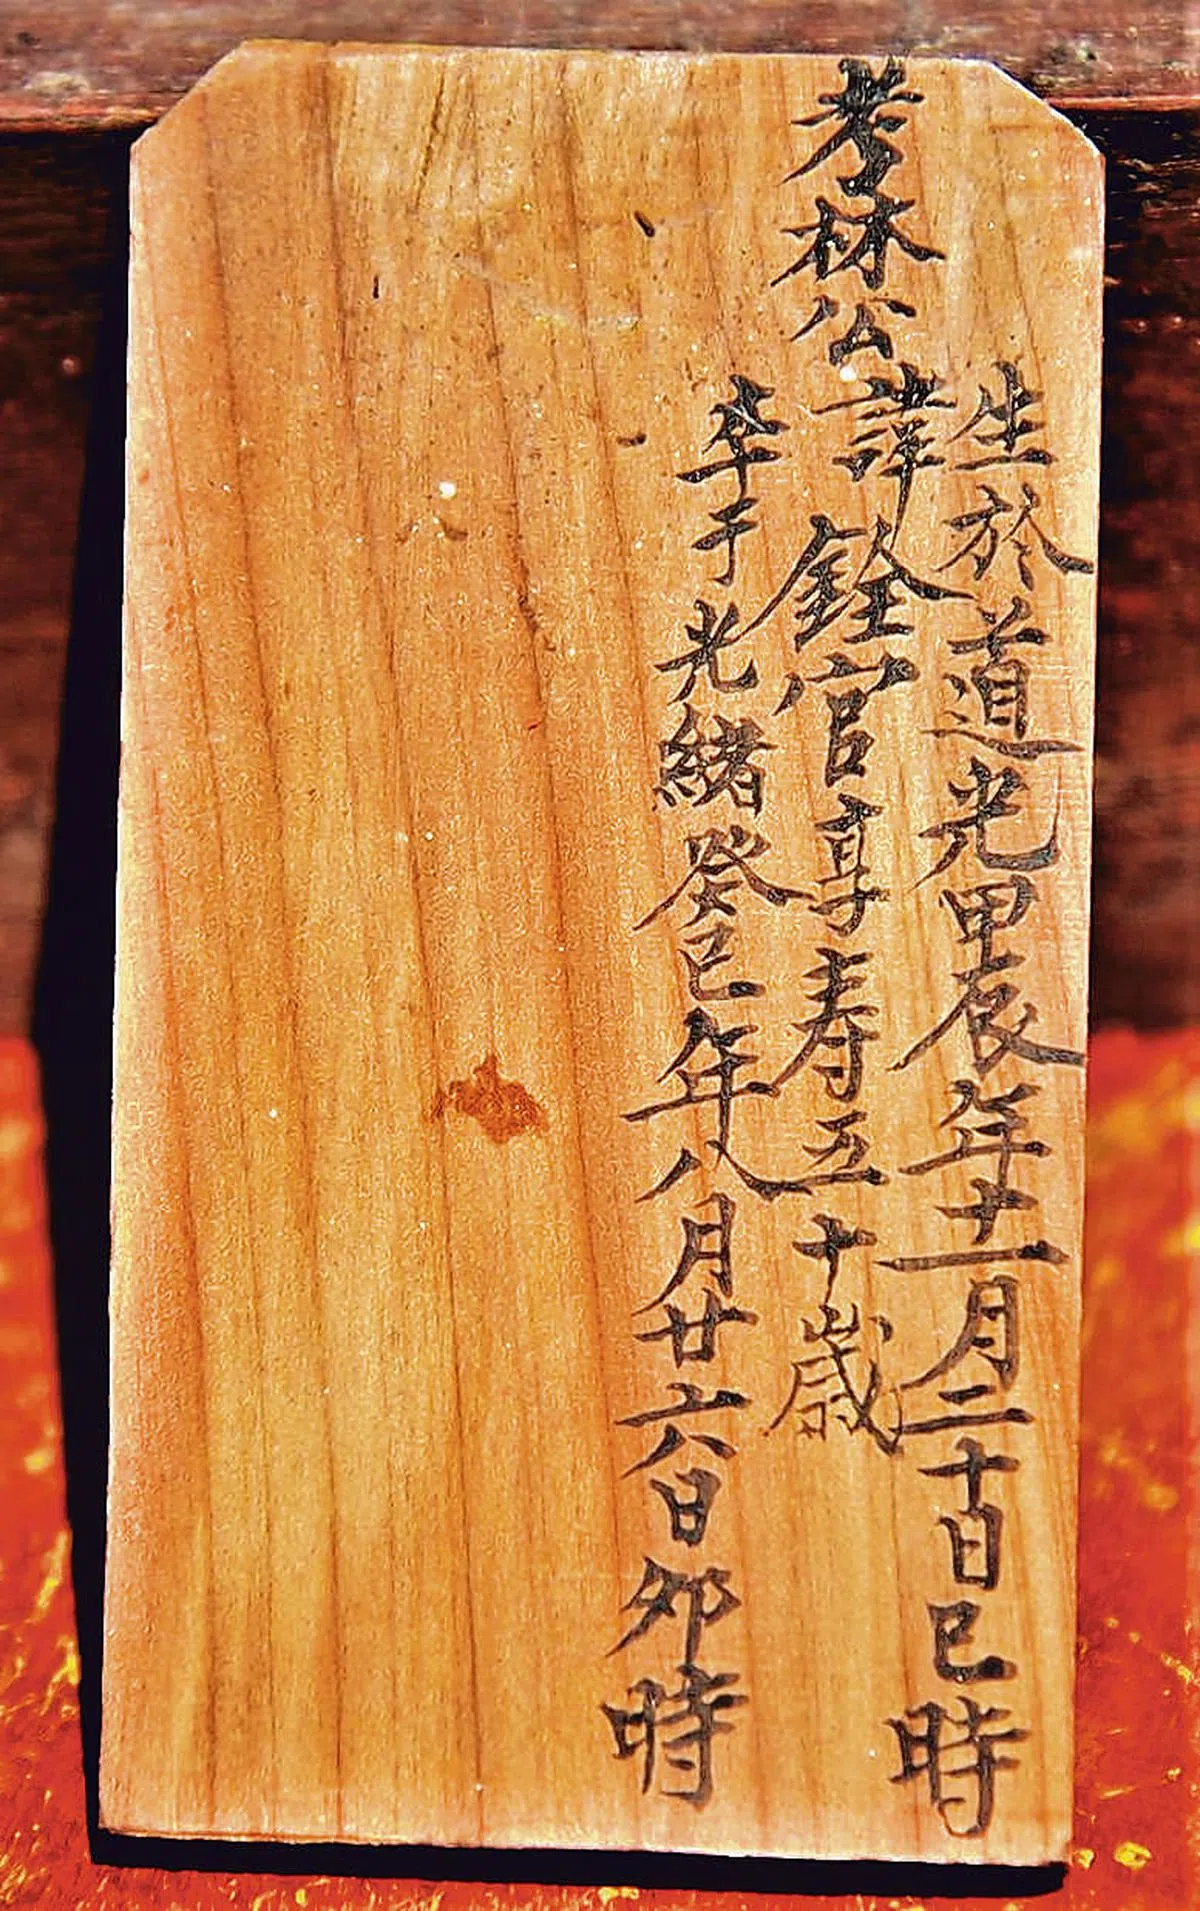 生於道光甲辰年十一月二十日巳時
考林公諱銓官享寿五十歲
卒于光緒癸巳年八月廿六日卯時